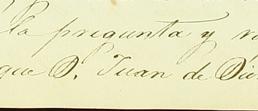 la pregunta y
que D. Juan de Dios